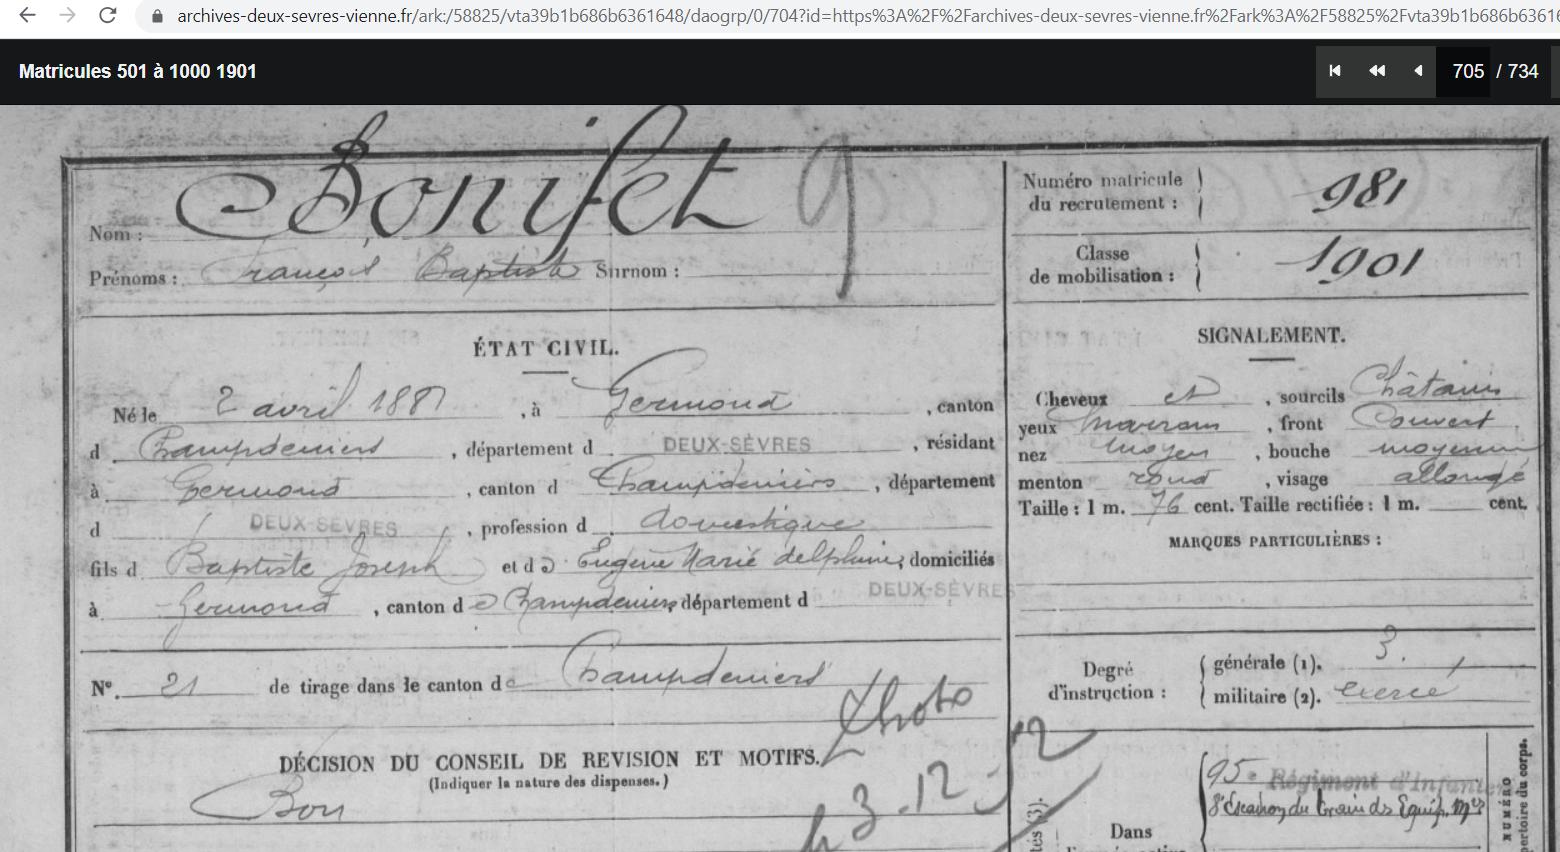 archives-deux-sevres-vienne.fr/ark:/58825/vta39b1b686b6361648/daogrp/0/704?id=https%3A%2F%2Farchives-deux-sevres-vienne.fr%2Fark%3A%2F58825%2Fvta39b1b686b63616
Matricules 501 à 1000 1901
705 / 734
Nom : Bonifet 9
Prénoms : François Baptiste Surnom :
Numéro matricule du recrutement : 981
Classe de mobilisation : 1901
ÉTAT CIVIL.
Né le 2 avril 1881, à Germond, canton
d Champdeniers, département d DEUX-SÈVRES, résidant
à Germond, canton d Champdeniers, département
d DEUX-SÈVRES, profession d domestique
fils d Baptiste Joseph et d Eugénie Marie delphine, domiciliés
à Germond, canton de Champdeniers, département d DEUX-SÈVRES
N° 21 de tirage dans le canton de Champdeniers
DÉCISION DU CONSEIL DE REVISION ET MOTIFS.
(Indiquer la nature des dispenses.)
Bon
Photo
3.12
12
SIGNALEMENT.
Cheveux et, sourcils Châtains
yeux marrons, front Couvert
nez moyen, bouche moyenne
menton rond, visage allongé
Taille : 1 m. 76 cent. Taille rectifiée : 1 m. cent.
MARQUES PARTICULIÈRES :
Degré d'instruction :
générale (1). 3.
militaire (2). exercé
Dans
95e Régiment d'Infanterie
8e Escadron du train des Equip. Mres
NUMÉRO